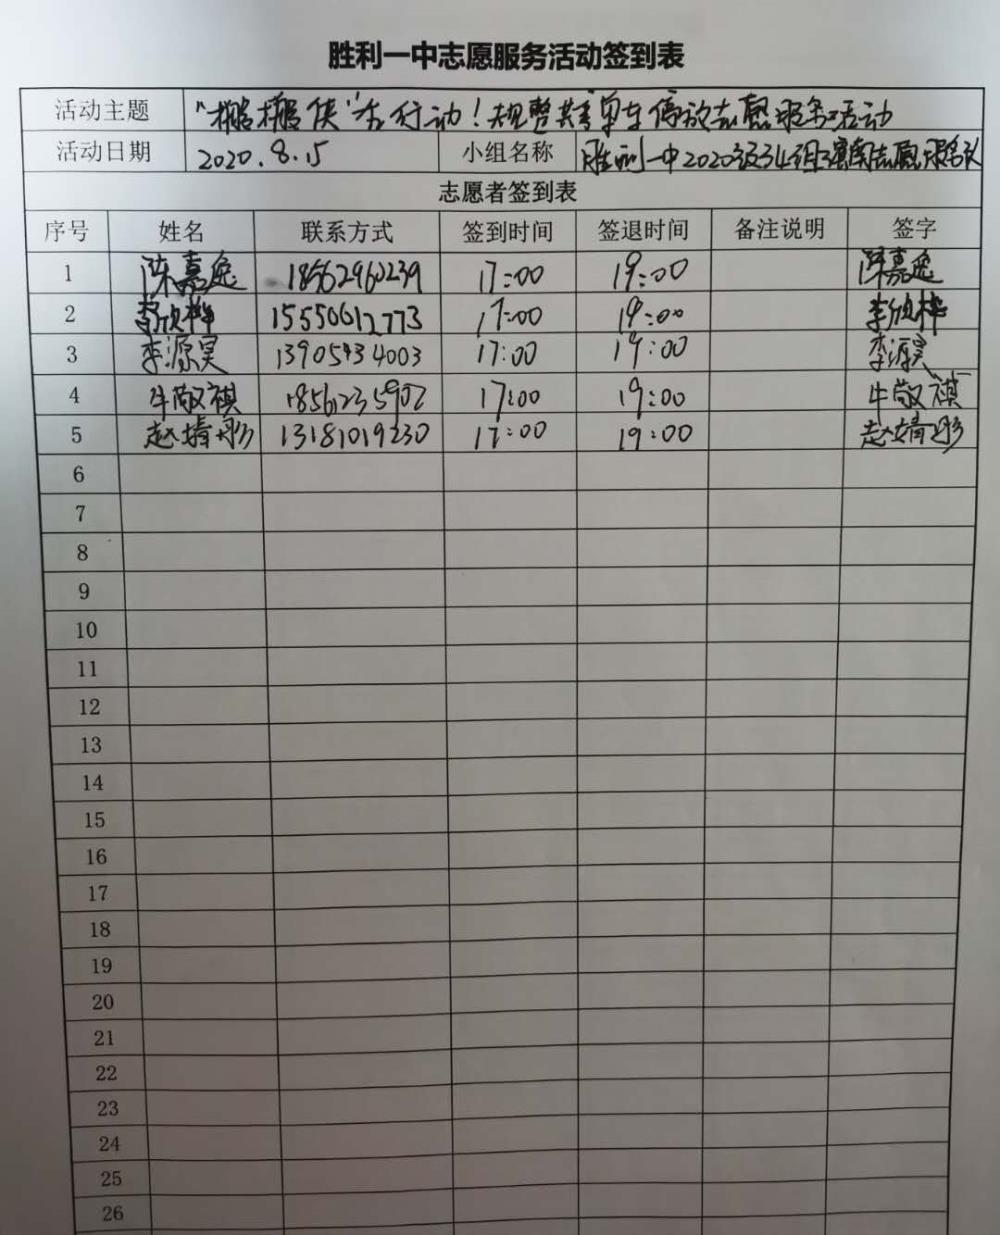 胜利一中志愿服务活动签到表
活动主题 "挪挪侠"在行动！规整共享单车停放志愿服务活动
活动日期 2020.8.15 小组名称 胜利一中2020级34组 志愿服务队
志愿者签到表
序号 姓名 联系方式 签到时间 签退时间 备注说明 签字
1 陈嘉逸 18562960239 17:00 19:00 陈嘉逸
2 李欣桦 15550612773 17:00 19:00 李欣桦
3 李源昊 13905434003 17:00 19:00 李源昊
4 牛敬祺 18561235902 17:00 19:00 牛敬祺
5 赵婧彤 13181019230 17:00 19:00 赵婧彤
6
7
8
9
10
11
12
13
14
15
16
17
18
19
20
21
22
23
24
25
26